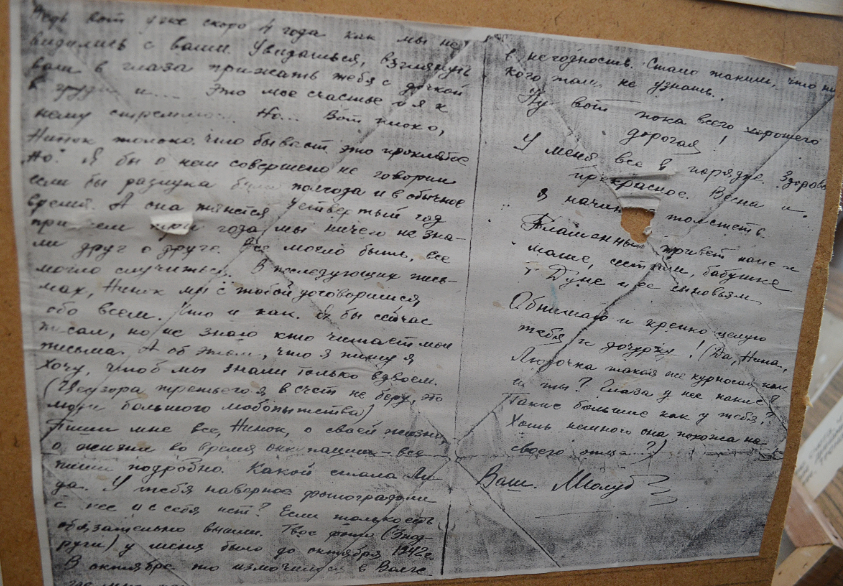 Ведь вот уже скоро 4 года как мы не
видались с вами. Увидаться, взглянуть
вам в глаза прижать тебя с дочкой
к груди и.... Это мое счастье и я к
нему стремлюсь. Но... Вот плохо,
Нинок только, что бывает это проклятое
"Но". Я бы о нем совершенно не говорил
если бы разлука была полгода и в обычное
время. А она тянется четвертый год
причем три года мы ничего не зна-
ли друг о друге. Все могло быть, все
могло случиться. В последующих пись-
мах, Нинок мы с тобой договоримся
обо всем. Что и как. Я бы сейчас
писал, но не знаю кто читает мои
письма. А об этом, что я пишу я
хочу, чтоб мы знали только вдвоем.
(Цензора третьего я в счет не беру, это
люди большого любопытства)
Пиши мне все, Нинок, о своей жизни,
о жизни во время оккупации - все
пиши подробно. Какой стала Ли-
да. У тебя наверное фотографии
с нее и с себя нет? Если только есть
обязательно вышли. Твое фото (
) у меня было до октября 1942г.
В октябре то измочилось в Волге
в негодность. Стало таким, что ни
кого там не узнать.
Ну вот пока всего хорошего
дорогая!
У меня все в порядке. Здоровье
прекрасное. Весна и
я начин толстеть
Пламенный привет папе и
маме, сестрам, бабушке
т. Дуне и ее сыновьям.
Обнимаю и крепко целую
тебя и дочурку! (Да, Нина,
Лидочка такая же курносая как
и ты? Глаза у нее какие?
Такие большие как у тебя?
Хоть немного она похожа на
своего отца?)
Ваш